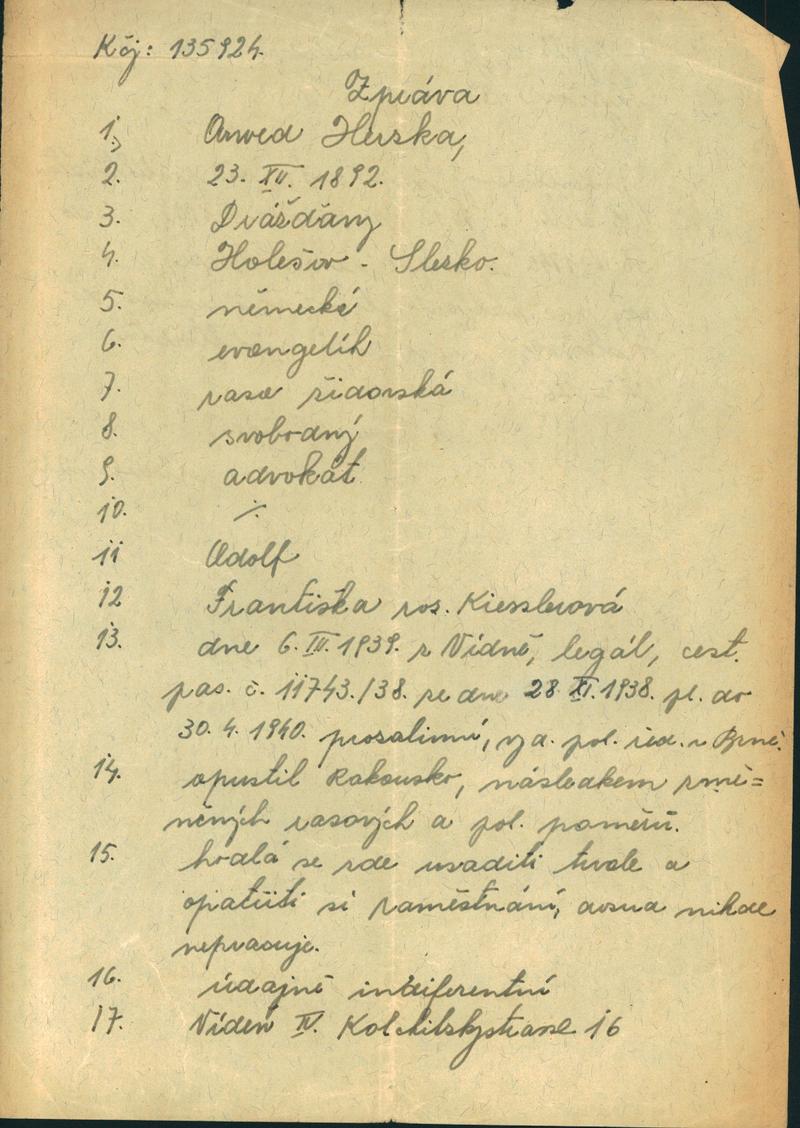 Kčj: 135924.
Zpráva
1. Arwed Herzka,
2. 23. XII. 1892.
3. Drážďany
4. Holešov - Slezko.
5. německé
6. evangelík
7. rasa židovská
8. svobodný
9. advokát
10. ∕.
11 Adolf
12 Františka roz. Kiesslerová
13. dne 6. III. 1939. z Vídně, legál, cest.
pas. č. 11743./38. ze dne 28 XI. 1938. pl. do
30. 4. 1940. prozatimní, vyd. pol. řed. v Brně.
14. opustil Rakousko, následkem změ=
něných rasových a pol. poměrů.
15. hodlá se zde usaditi trvale a
opatřiti si zaměstnání, dosud nikde
nepracuje.
16. údajně indiferentní
17. Vídeň IV. Kolschitzkystrasse 16